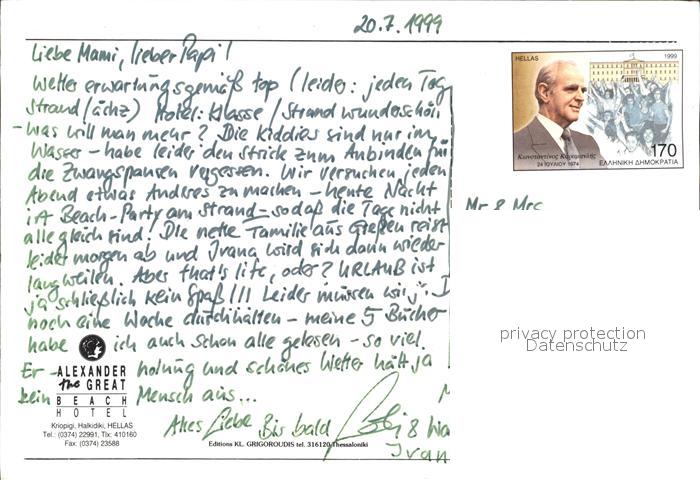 20.7.1999
Liebe Mami, lieber Papi!
Wetter erwartungsgemäß top (leider: jeden Tag
Strand (ächz) Hotel: Klasse / Strand wunderschön
- was will man mehr? Die Kiddies sind nur im
Wasser - habe leider den Strick zum Anbinden für
die Zwangspausen vergessen. Wir versuchen jeden
Abend etwas Anderes zu machen - heute Nacht
ist Beach-Party am Strand - sodaß die Tage nicht
alle gleich sind! Die nette Familie aus Gießen reist
leider morgen ab und Ivana wird sich dann wieder
langweilen. Aber that's life, oder? URLAUB ist
ja schließlich kein Spaß!!! Leider müssen wir
noch eine Woche durchhalten - meine 5 Bücher
habe ich auch schon alle gelesen - so viel
Er- holung und schönes Wetter hält ja
kein Mensch aus...
Alles Liebe Bis bald
&
Ivan
ALEXANDER
the GREAT
BEACH
HOTEL
Kriopigi, Halkidiki, HELLAS
Tel.: (0374) 22991, Tlx: 410160
Fax: (0374) 23588
Editions KL. GRIGOROUDIS tel. 316120 Thessaloniki
HELLAS
1999
Κωνσταντίνος Καραμανλής
24 ΙΟΥΛΙΟΥ 1974
170
ΕΛΛΗΝΙΚΗ ΔΗΜΟΚΡΑΤΙΑ
Mr & Mrs
privacy protection
Datenschutz